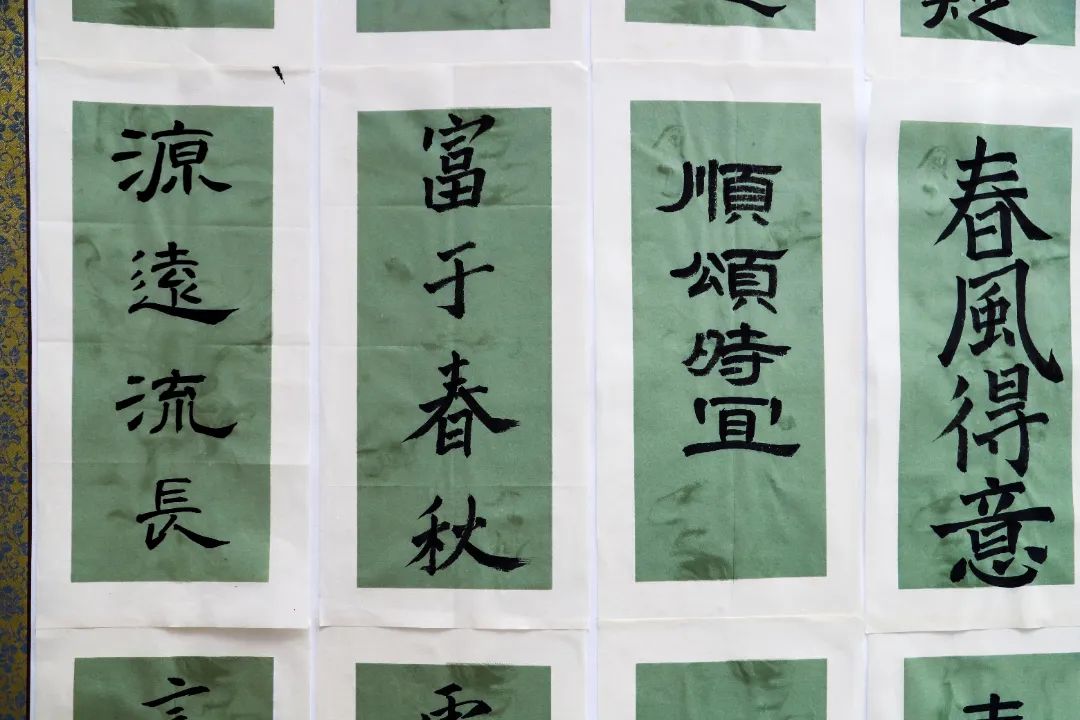 源遠流長
富于春秋
順頌時宜
春風得意